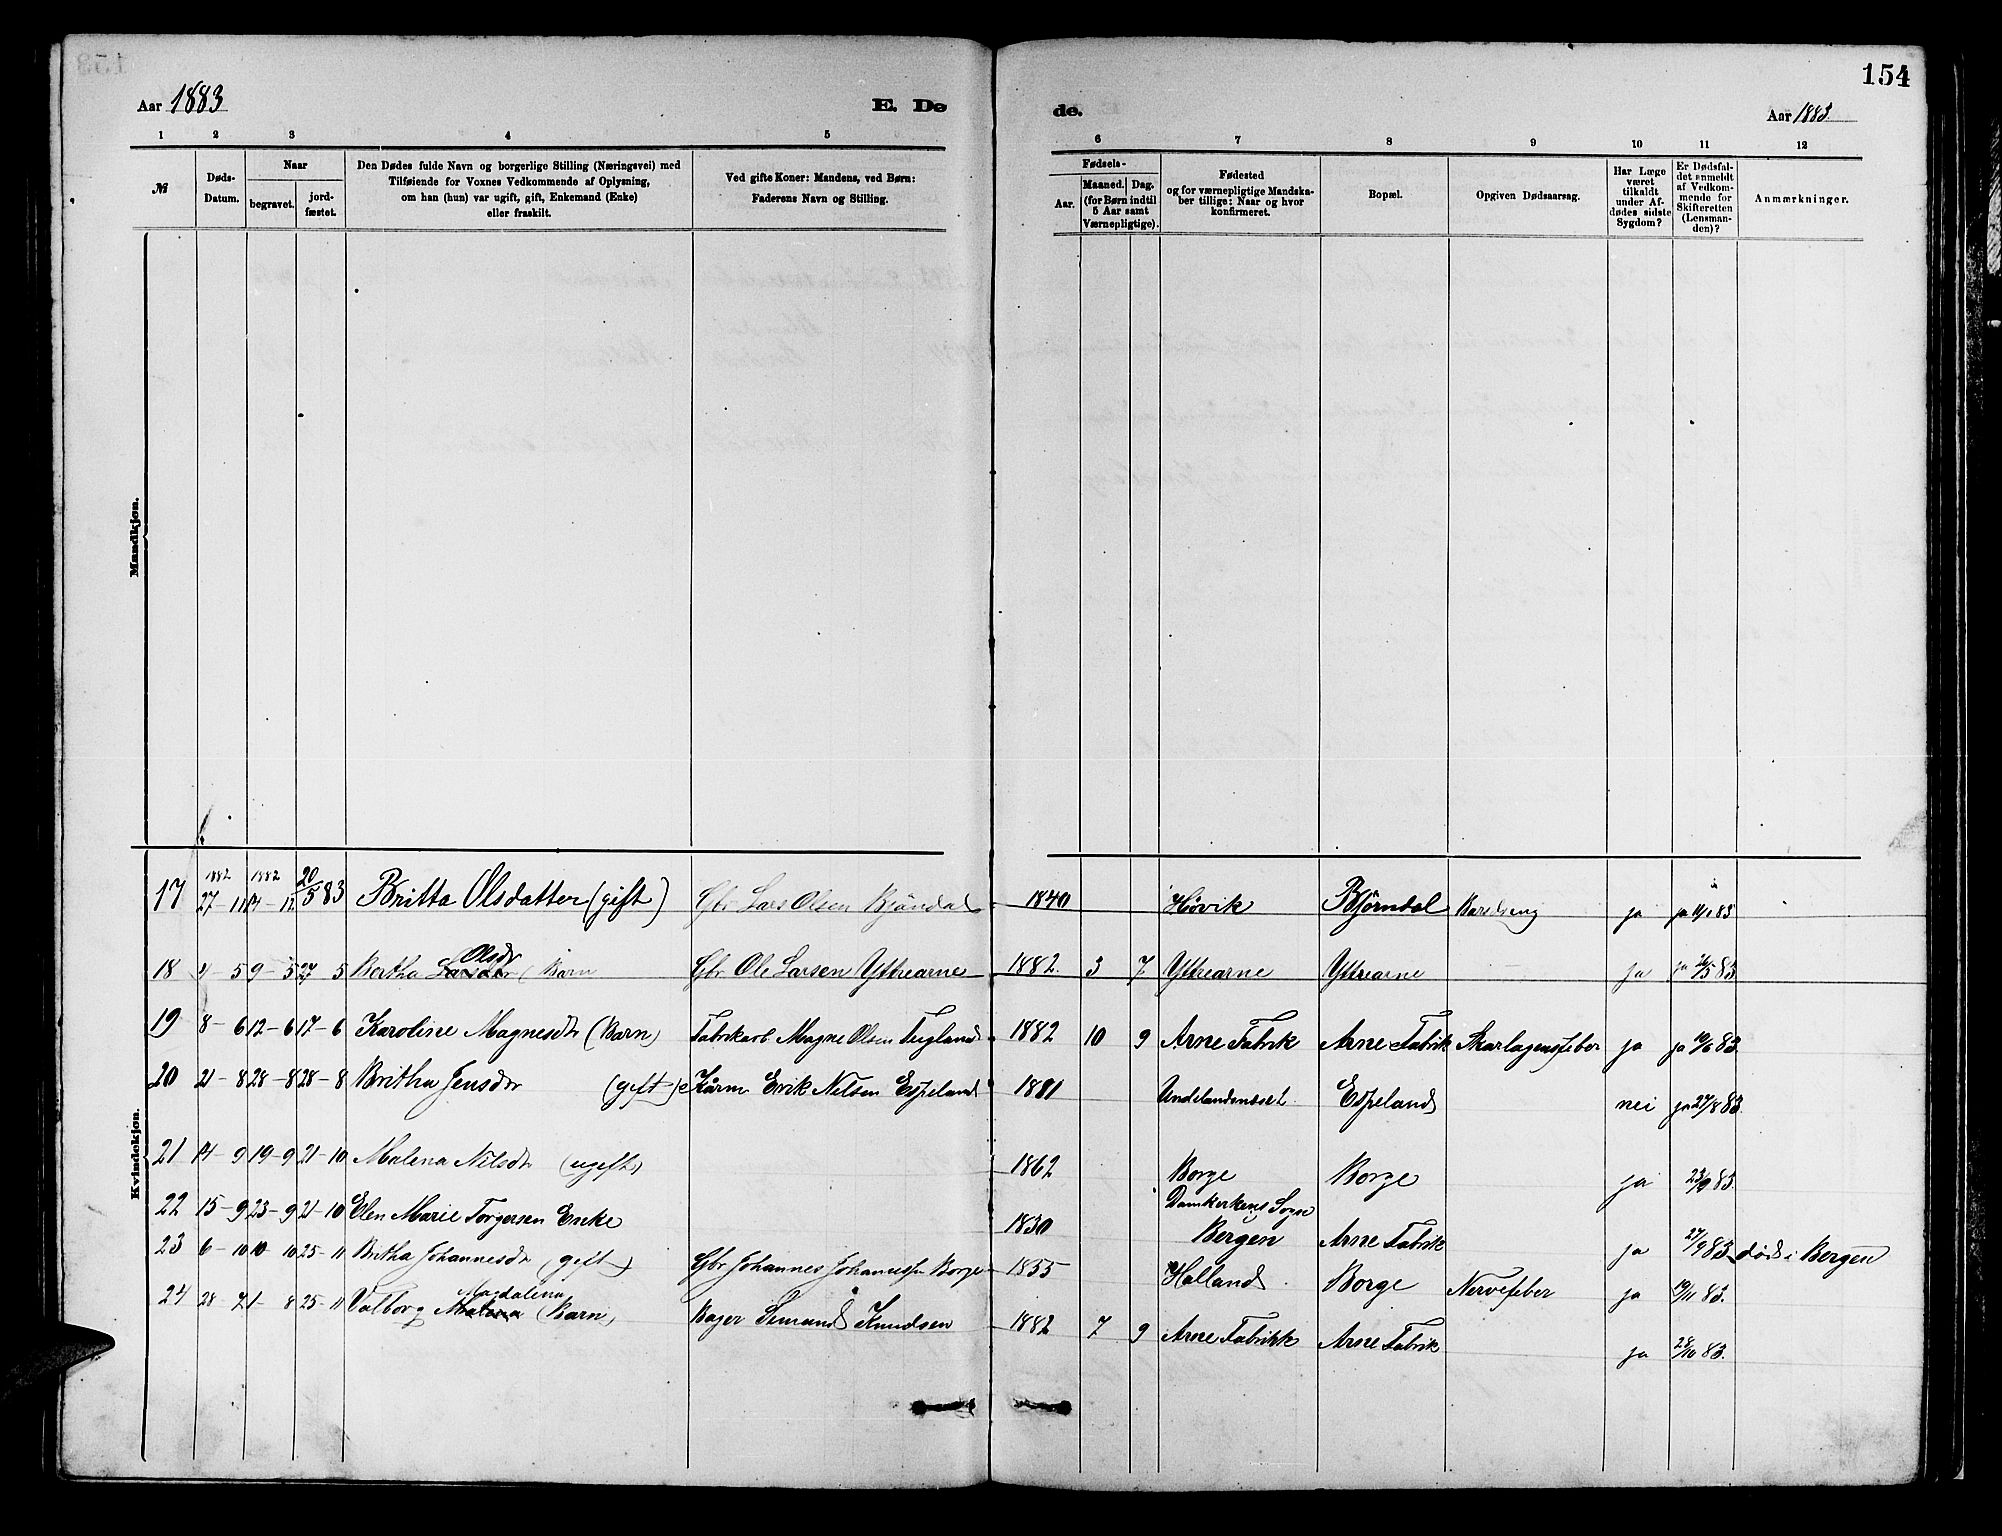 154
Aar 1883 E. De de. Aar 1883.
1 2 3 4 5 6 7 8 9 10 11 12
№
Døds-
Datum.
Naar
begravet.
jord-
fæstet.
Den Dødes fulde Navn og borgerlige Stilling (Næringsvei) med
Tilføiende for Voxnes Vedkommende af Oplysning,
om han (hun) var ugift, gift, Enkemand (Enke)
eller fraskilt.
Ved gifte Koner: Mandens, ved Børn:
Faderens Navn og Stilling.
Fødsels-
Aar.
Maaned. Dag.
(for Børn indtil
5 Aar samt
Værnepligtige).
Fødested
og for værnepligtige Mandska-
ber tillige: Naar og hvor
konfirmeret.
Bopæl.
Opgiven Dødsaarsag.
Har Læge
været
tilkaldt
under Af-
dødes sidste
Sygdom?
Er Dødsfal-
det anmeldt
af Vedkom-
mende for
Skifteretten
(Lensman-
den)?
Anmærkninger.
Mandkjøn.
Kvindekjøn.
1882 1882
17 27-11 20/5 83 Britta Olsdatter (gift) Gbr Lars Olsen Bjöndal 1840 Hövik Björndal Barselseng ja ja 11/1 83
18 4-5 9-5 27-5 Bertha Olsdr (Barn Gbr Ole Larsen Yttrearne 1882. 3 7 Yttrearne Yttrearne ja ja 83
19 8-6 12-6 17-6 Karoline Magnesdr (Barn) Fabrikarb Magne Olsen Tugland 1882 10 9 Arne Fabrik Arne Fabrik Skarlagensfeber ja ja 19/6 83.
20 21-8 28-8 28-8 Britha Jensdr (gift) Kårm Erik Nilsen Espeland 1801 Espeland nei ja 27/8 83.
21 14-9 19-9 21-10 Malena Nilsdr (ugift) 1862 Borge Borge ja 23/9 83.
22 15-9 23-9 21-10 Elen Marie Torgersen Enke 1830 Domkirkens Sogn Bergen Arne Fabrik ja 27/9 83. död i Bergen
23 6-10 10-10 25-11 Britha Johannesdr (gift) Gbr Johannes Johannessen Borge 1855 Holland Borge Nervefeber ja 19/11 83.
24 28-7 1-8 25-11 Valborg Magdalena (Barn) Bager Simund Knudsen 1882 7 9 Arne Fabrikk Arne Fabrik ja 28/10 83.